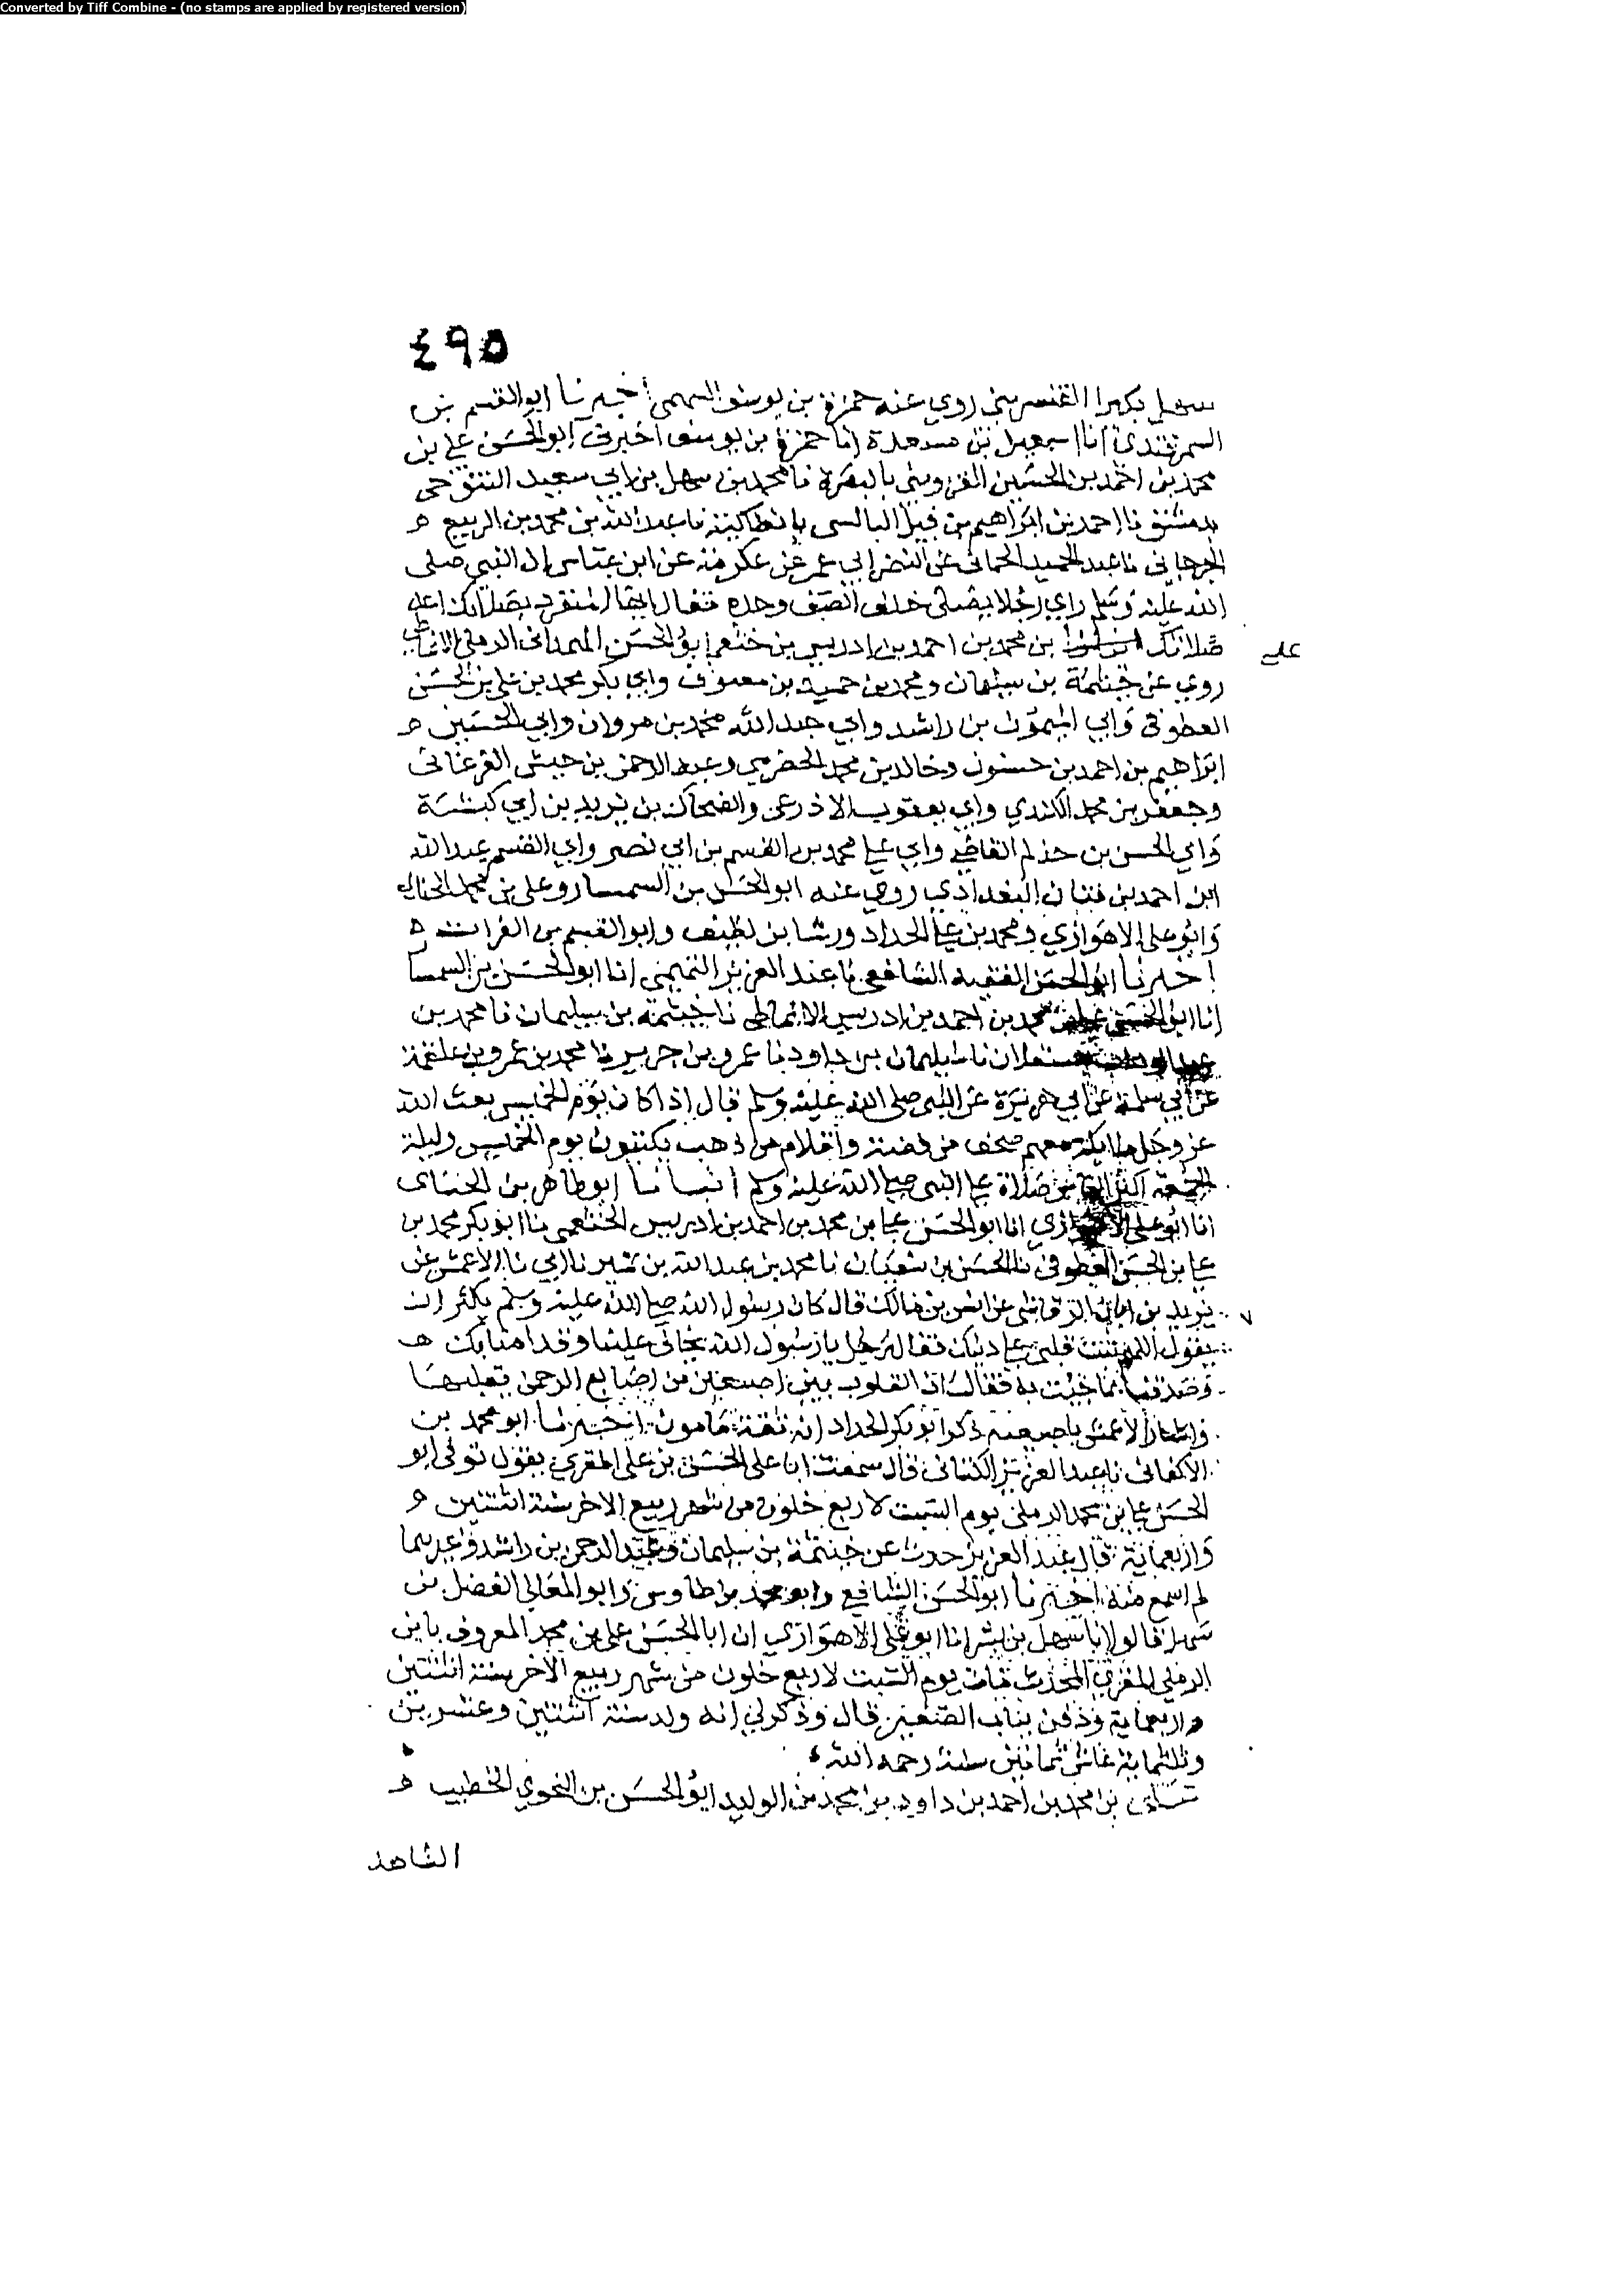 Converted by Tiff Combine - (no stamps are applied by registered version)
٤٩٥
سهل بكير القنسريني روي عنه حمزة بن يوسف السهمي أخبرنا ابو القسم بن
السمرقندي انا اسمعيل بن مسعدة انا حمزة بن يوسف اخبرني ابو الحسن علي بن
محمد بن احمد بن الحسين القزويني بالبصرة نا محمد بن سهل بن ابي سعيد التنوخي
بدمشق نا احمد بن ابراهيم بن فيل البالسي بانطاكية نا عبد الله بن محمد بن الربيع ه
الجرجاني نا عبد الحميد الحماني عن النضر ابي عمر عن عكرمة عن ابن عباس ان النبي صلى
الله عليه وسلم راي رجلا يصلي خلف الصف وحده فقال ايها المنفرد بصلاتك اعد
صلاتك
علي
بن محمد بن احمد بن ادريس بن خثعم ابو الحسن الهمداني الرملي الانماطي
روي عن خيثمة بن سليمان ومحمد بن حميد بن معيوف وابي بكر محمد بن علي بن الحسن
العطوفي وابي الميمون بن راشد وابي عبد الله محمد بن مروان وابي الحسين ه
ابراهيم بن احمد بن حسنون وخالد بن محمد الحضرمي وعبد الرحمن بن حبيش الفرغاني
وجعفر بن محمد الكندي وابي يعقوب الاذرعي والضحاك بن يزيد بن ابي كبشة
وابي الحسن بن حذلم القاضي وابي علي محمد بن القسم بن ابي نصر وابي القسم عبد الله
ابن احمد بن البغدادي روي عنه ابو الحسن بن السمسار وعلي بن محمد الحنائي
وابو علي الاهوازي ومحمد بن علي الحداد ورشا بن نظيف وابو القسم بن الفرات ه
اخبرنا ابو الحسن الفقيه الشافعي نا عبد العزيز التميمي انا ابو الحسن بن السمسا
انا ابو الحسن علي بن محمد بن احمد بن ادريس الانماطي نا خيثمة بن سليمان نا محمد بن
نا سليمان بن داود نا عمرو بن جرير نا محمد بن عمرو بن علقمة
عن ابي سلمة عن ابي هريرة عن النبي صلى الله عليه وسلم قال اذا كان يوم الخميس بعث الله
عز وجل ملايكة معهم صحف من فضة واقلام من ذهب يكتبون يوم الخميس وليلة
الجمعة اكثر الناس صلاة علي النبي صلى الله عليه وسلم أنبانا ابو طاهر بن الحنائي
انا ابو علي الاهوازي انا ابو الحسن علي بن محمد بن احمد بن ادريس الخثعمي نا ابو بكر محمد بن
علي بن الحسن العطوفي نا الحسن بن شعبان نا محمد بن عبد الله بن نمير نا ابي نا الاعمش عن
يزيد بن ابان الرقاشي عن انس بن مالك قال كان رسول الله صلى الله عليه وسلم يكثر ان
يقول اللهم ثبت قلبي علي دينك فقال رجل يا رسول الله تخاف علينا وقد امنا بك ه
وصدقنا بما جيت به فقال ان القلوب بين اصبعين من اصابع الرحمن يقلبها
واشار الاعمش باصبعيه ذكر ابو بكر الحداد انه ثقة مامون اخبرنا ابو محمد بن
الاكفاني نا عبد العزيز الكتاني قال سمعت ابا علي الحسن بن علي المقري يقول توفي ابو
الحسن علي بن محمد الرملي يوم السبت لاربع خلون من شهر ربيع الاخر سنة اثنتين ه
واربعماية قال عبد العزيز حدث عن خيثمة بن سليمان وعبد الرحمن بن راشد وغيرهما
لم اسمع منه اخبرنا ابو الحسن الشافعي وابو محمد بن طاوس وابو المعالي الفضل بن
سهل قالوا انا سهل بن بشر انا ابو علي الاهوازي ان ابا الحسن علي بن محمد المعروف بابن
الرملي المقري المحدث مات يوم السبت لاربع خلون من شهر ربيع الاخر سنة اثنتين
واربعماية ودفن بباب الصغير قال وذكر لي انه ولد سنة اثنتين وعشرين
وثلثماية عاش ثمانين سنة رحمه الله
بن محمد بن احمد بن داود بن محمد بن الوليد ابو الحسن بن النحوي الخطيب ه
الشاهد